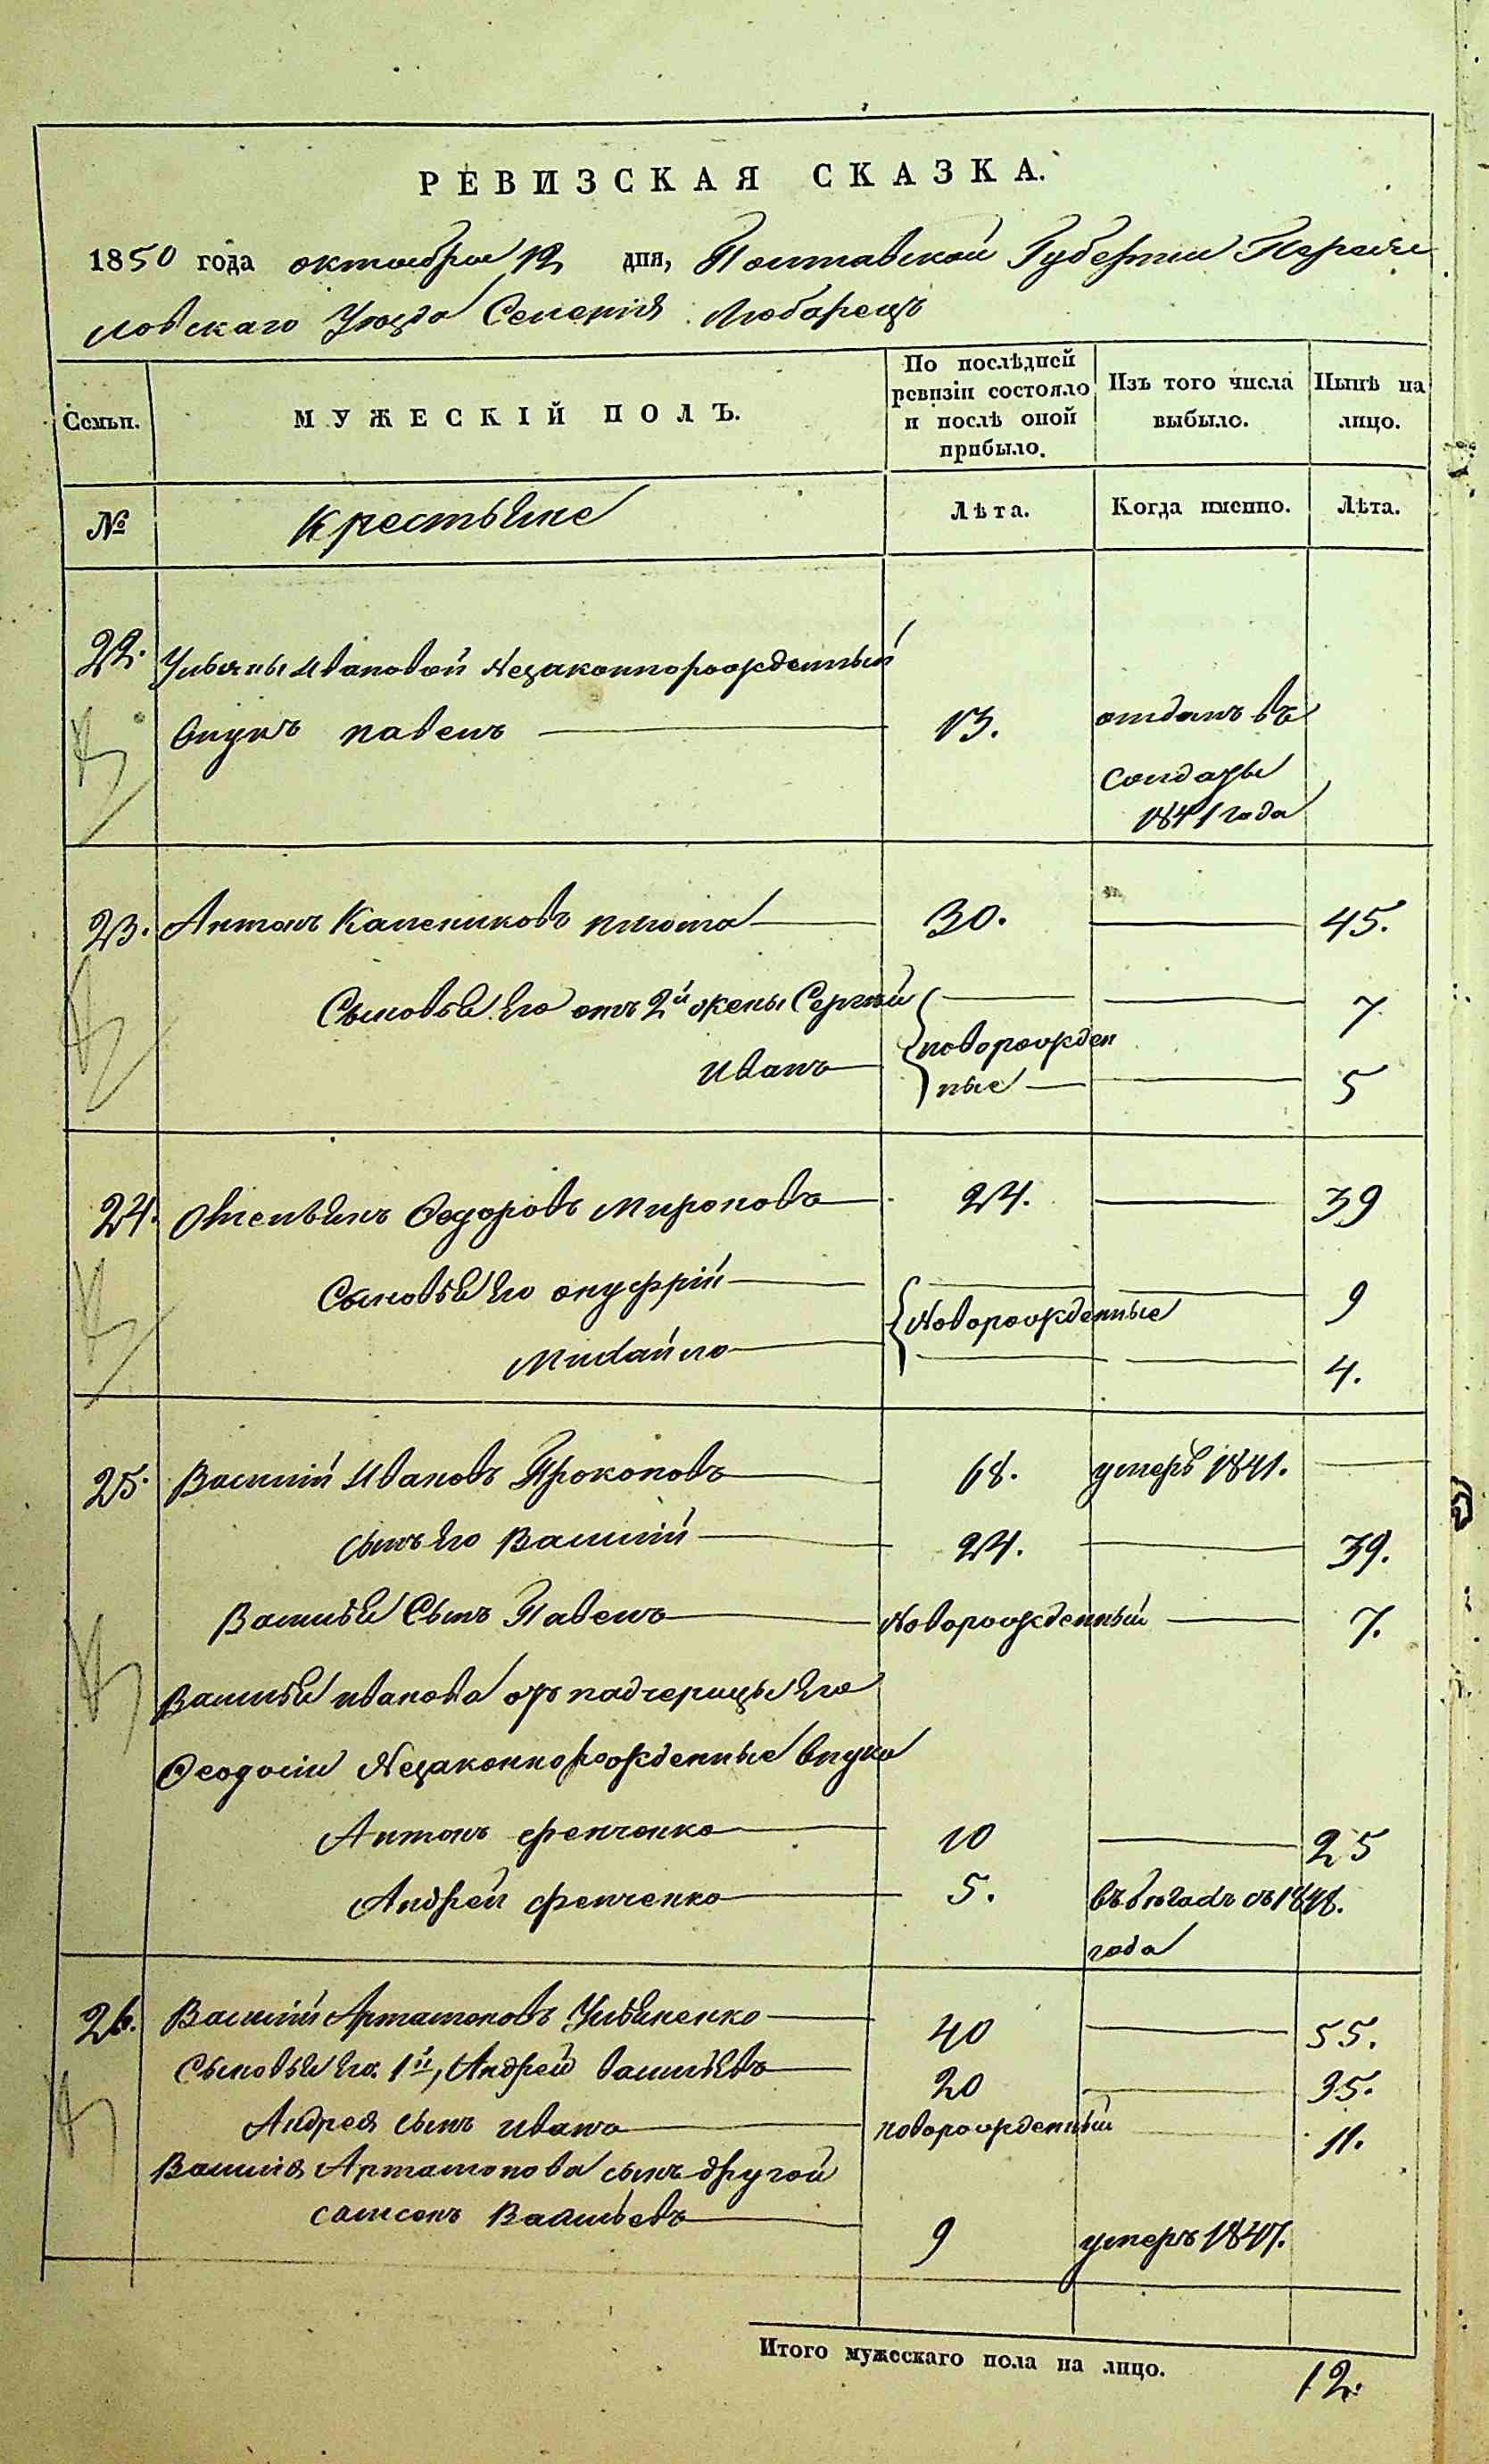 РЕВИЗСКАЯ СКАЗКА.
1850 года октября 12 дня, Полтавской Губернии Переяс
ловскаго Уезда Селенія Любарецъ
Семьи.
МУЖЕСКІЙ ПОЛЪ.
По послѣдней ревизіи состояло и послѣ оной прибыло.
Изъ того числа выбыло.
Нынѣ на лицо.
№
Крестьяне
Лѣта.
Когда именно.
Лѣта.
22. Ульяны Ивановой Незаконнорожденный
внукъ павелъ 13. отданъ въ
солдаты
1841 года
23. Антонъ Калениковъ 30. 45.
Сыновья его отъ 2й жены Сергѣй 7
новорожден
Иванъ ные 5
24. Омельянъ Федоровъ Мироновъ 24. 39
Сыновья его онуфрій 9
Новорожденные
Михайло 4.
25. Василий Ивановъ Прокоповъ 68. умеръ 1841.
сынъ его Василий 24. 39.
Василья Сынъ Павелъ Новорожденный 7.
Василья иванова отъ падчерицы его
Феодосіи Незаконнорожденные внуки
Антонъ фенченко 10 25
Андрей фенченко 5. въ бѣгахъ съ 1848.
года
26. Василий Артамоновъ Ульяненко 40 55.
Сыновья его 1й, Андрей васильевъ 20 35.
Андрея сынъ иванъ новорожденный 11.
Василія Артамонова сынъ другой
самсонъ Васильевъ 9 умеръ 1847.
Итого мужескаго пола на лицо. 12.